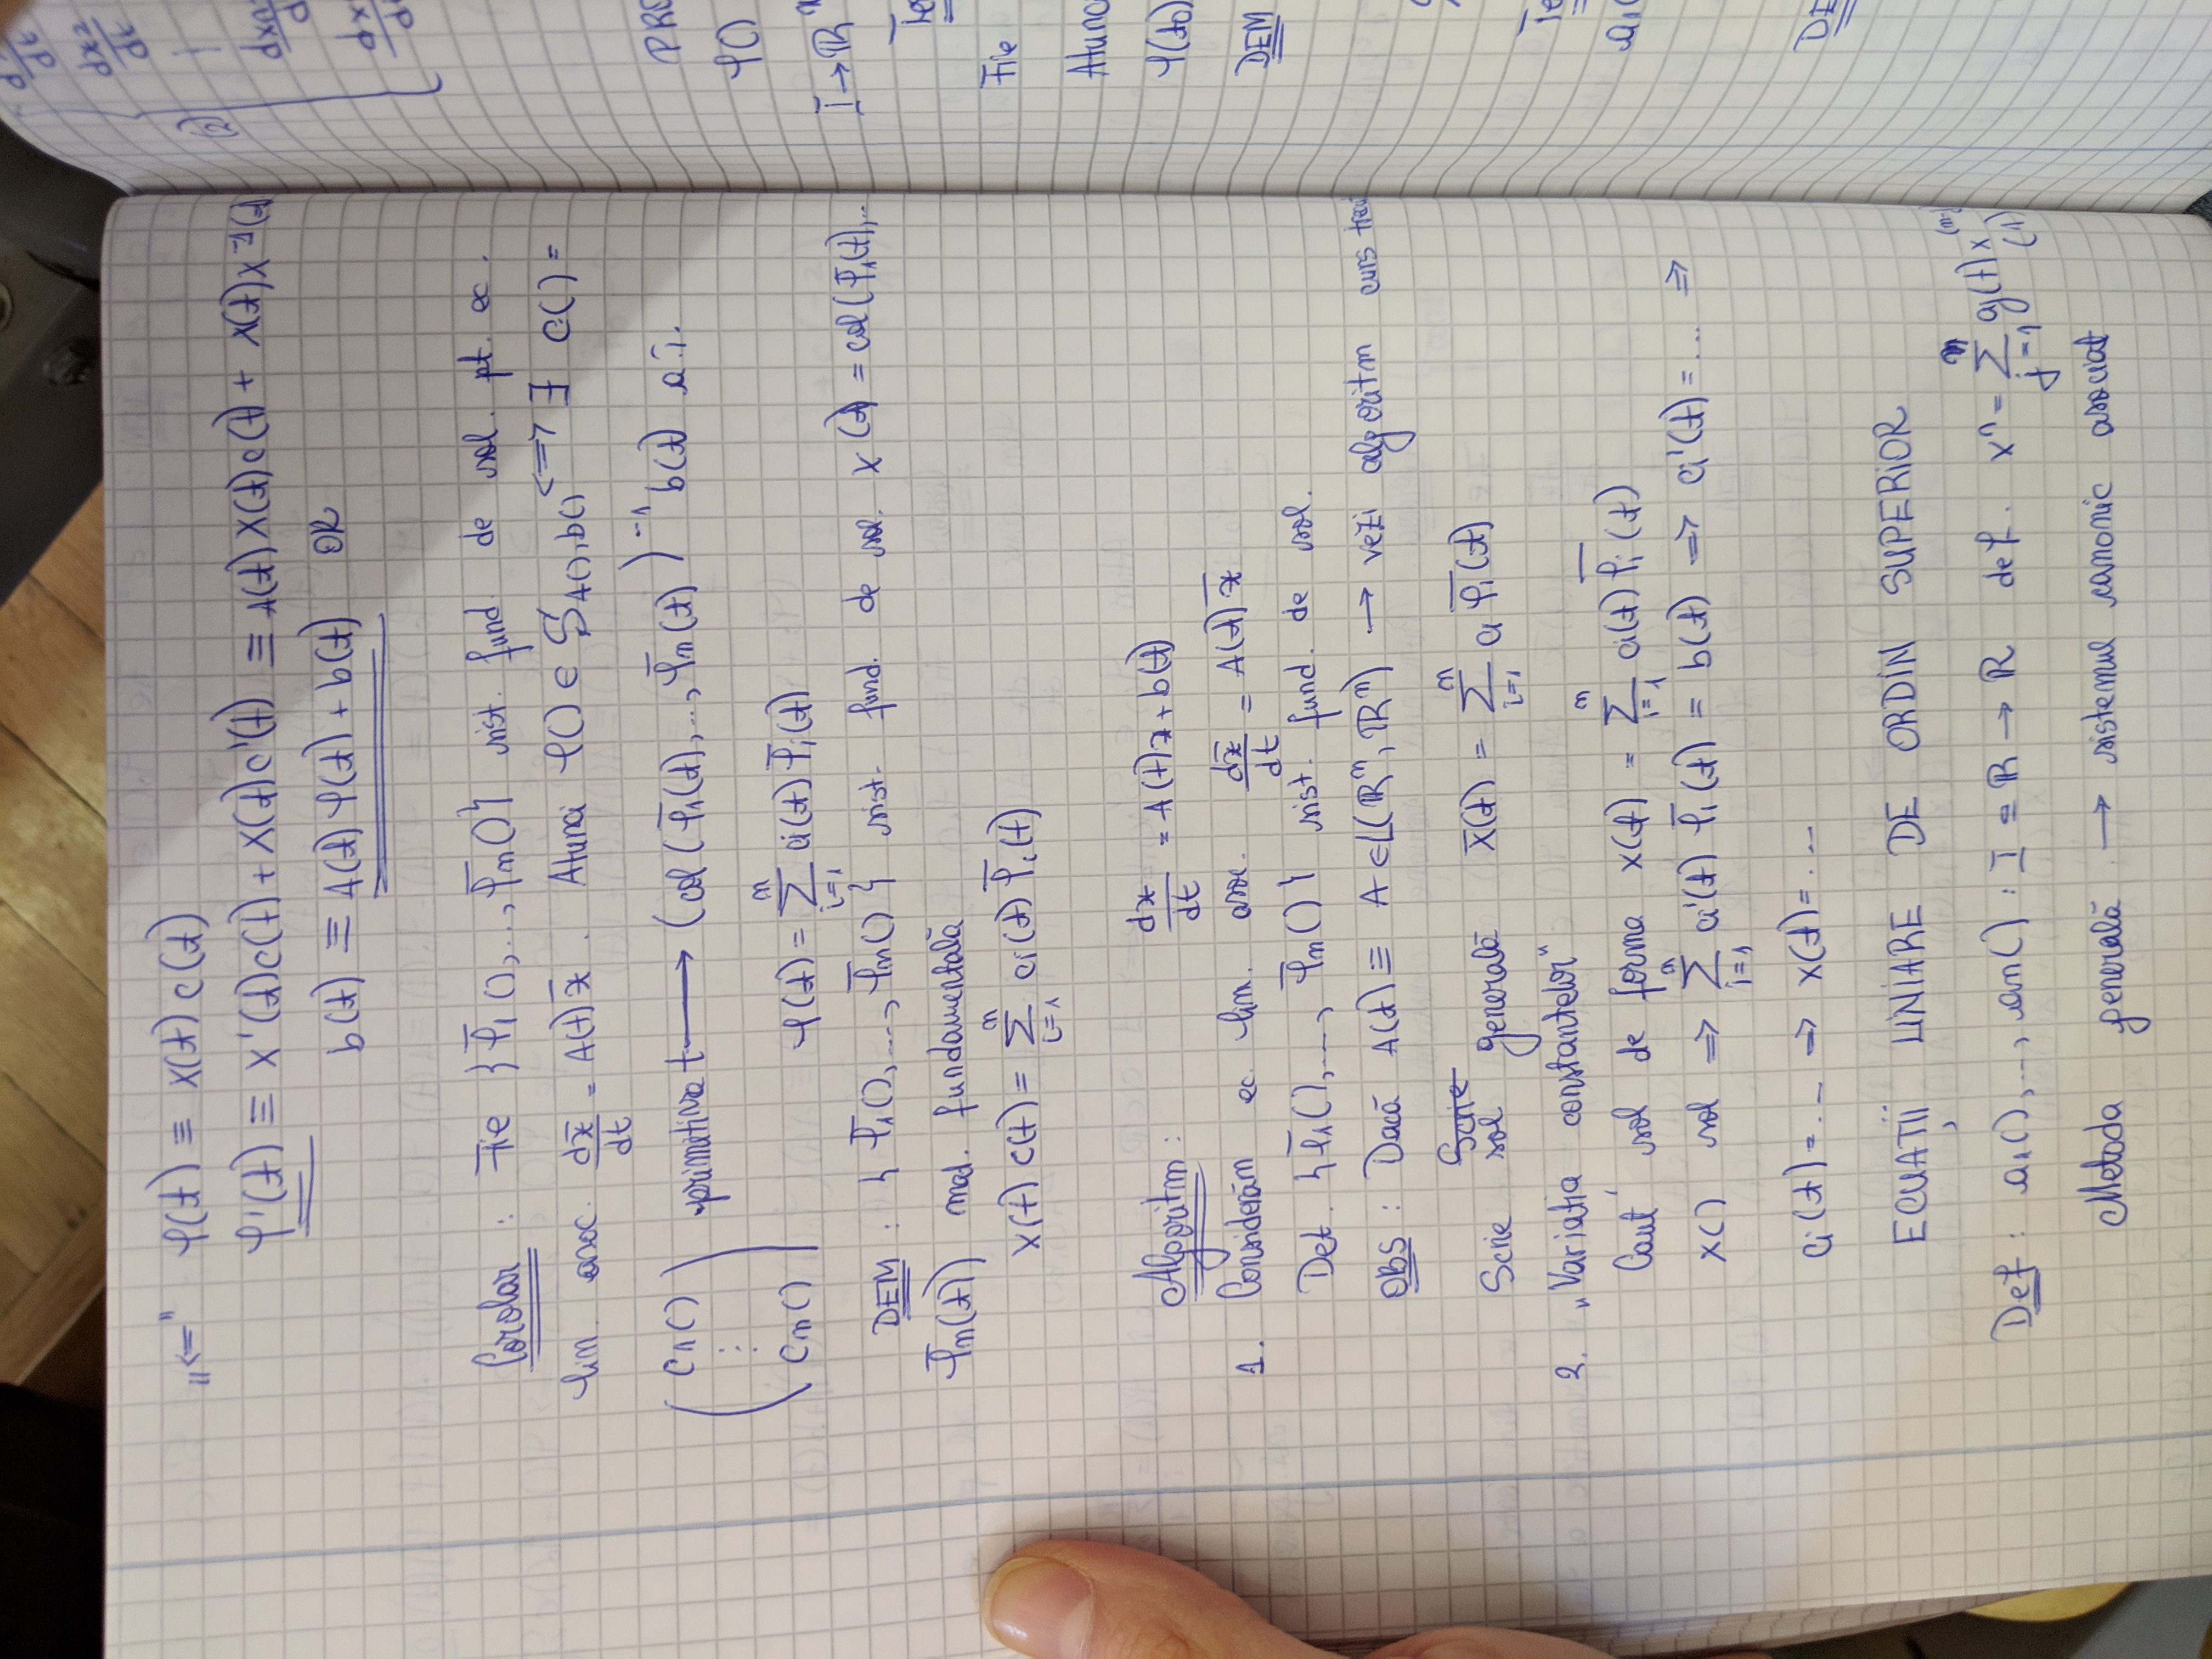 „<=" φ(t) ≡ X(t) c(t)
φ'(t) ≡ X'(t)c(t) + X(t)c'(t) ≡ A(t) X(t) c(t) + X(t) X⁻¹(t)
b(t) ≡ A(t) φ(t) + b(t) OK
Corolar : Fie {φ̄₁(),..., φ̄n()} sist. fund. de sol. pt. ec.
lin. asoc. dx̄/dt = A(t) x̄ . Atunci φ() ∈ S_A(),b() <=> ∃ c() =
(c₁() ⋮ cn()) primitiva t → (col (φ̄₁(t),..., φ̄n(t))⁻¹ b(t) a.î.
φ(t) = Σ_{i=1}^{n} ci(t) φ̄i(t)
DEM : {φ̄₁(),..., φ̄n()} sist. fund. de sol. X(t) = col (φ̄₁(t),...
φ̄n(t)) mat. fundamentală
X(t) c(t) = Σ_{i=1}^{n} ci(t) φ̄i(t)
Algoritm : dx/dt = A(t)x + b(t)
1. Considerăm ec. lin. asoc. dx̄/dt = A(t) x̄
Det. {φ̄₁(),..., φ̄n()} sist. fund. de sol.
OBS : Dacă A(t) ≡ A ∈ L(ℝⁿ, ℝⁿ) → vezi algoritm curs trecut
Scrie
Scrie sol generală x̄(t) = Σ_{i=1}^{n} ci φ̄i(t)
2. „Variația constantelor"
Caut sol de forma x(t) = Σ_{i=1}^{n} ci(t) φ̄i(t)
x() sol => Σ_{i=1}^{n} ci'(t) φ̄i(t) = b(t) => ci'(t) = ... =>
ci(t) = ... => x(t) = ...
ECUAȚII LINIARE DE ORDIN SUPERIOR
Def : a₁(),..., an() : I ⊆ ℝ → ℝ def. xⁿ = Σ_{j=1}^{n} aj(t) x^(n-j) (1)
Metoda generală → sistemul canonic asociat
d
dt
dx2
dt
(2)
dxn
d
dx
d
PRO
φ()
I → ℝⁿ
Te
Fie
Atunc
φ(t0)
DEM
Te
a₁(
DE